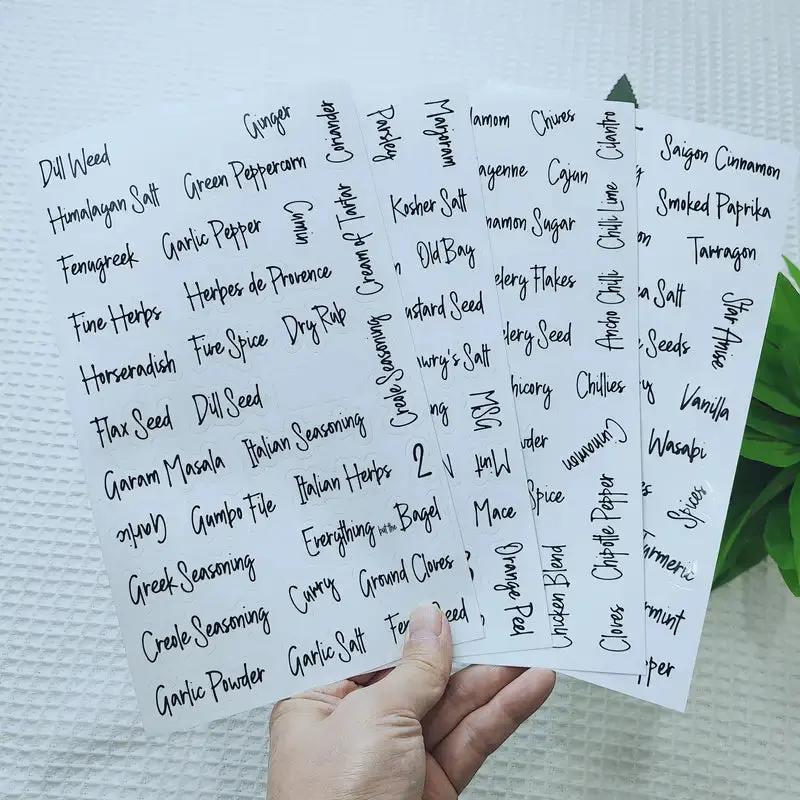 Dill Weed
Ginger
Coriander
Himalayan Salt
Green Peppercorn
Fenugreek
Garlic Pepper
Cumin
Cream of Tartar
Fine Herbs
Herbes de Provence
Horseradish
Five Spice
Dry Rub
Creole Seasoning
Flax Seed
Dill Seed
Garam Masala
Italian Seasoning
2
Garlic
Gumbo File
Italian Herbs
Greek Seasoning
Everything but the Bagel
Creole Seasoning
Curry
Ground Cloves
Garlic Powder
Garlic Salt
Parsley
Marjoram
Kosher Salt
Old Bay
ustard Seed
awry's Salt
MSG
Mint
Mace
Orange Peel
damom
Chives
Cilantro
ayenne
Cajun
namon Sugar
Chilli Lime
elery Flakes
elery Seed
Ancho Chilli
hicory
Chillies
Cinnamon
Spice
Chipotle Pepper
Chicken Blend
Cloves
Saigon Cinnamon
Smoked Paprika
Tarragon
ea Salt
Star Anise
Seeds
Vanilla
Wasabi
Spices
Turmeric
rmint
pper